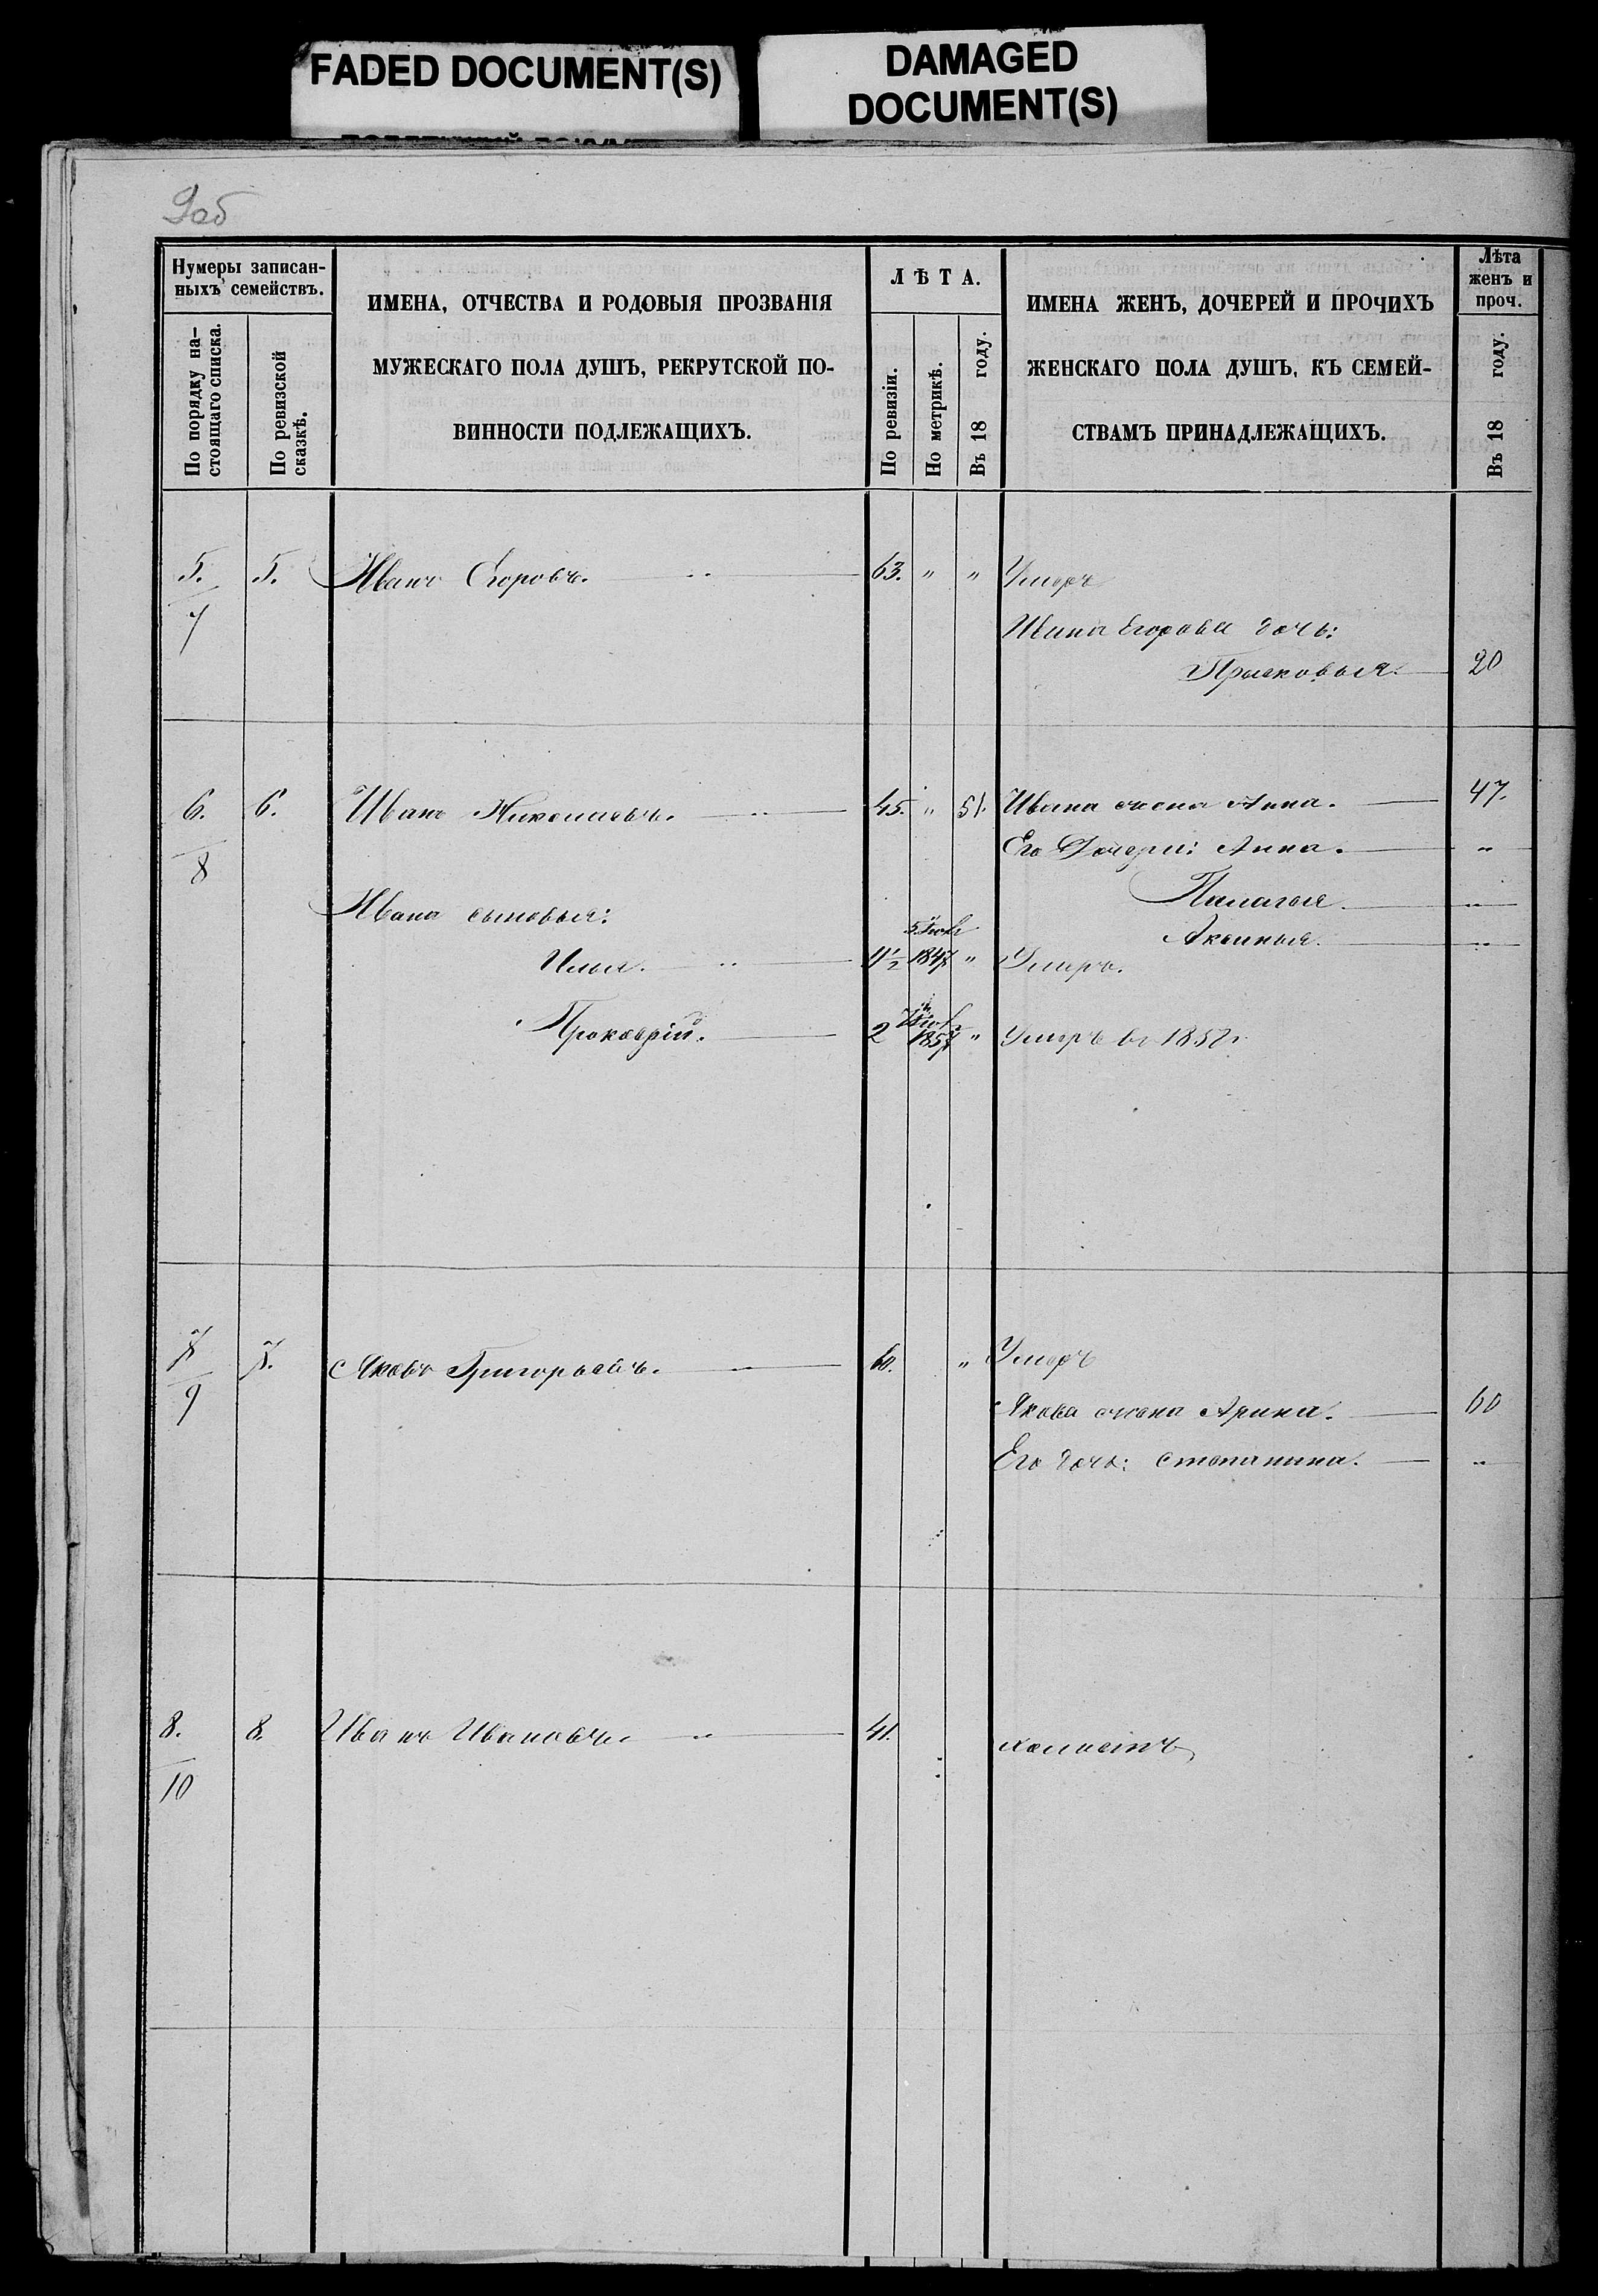 FADED DOCUMENT(S)
DAMAGED
DOCUMENT(S)
9об
Нумеры записан-
ныхъ семействъ.
По порядку на-
стоящаго списка.
По ревизской
сказкѣ.
ИМЕНА, ОТЧЕСТВА И РОДОВЫЯ ПРОЗВАНІЯ
МУЖЕСКАГО ПОЛА ДУШЪ, РЕКРУТСКОЙ ПО-
ВИННОСТИ ПОДЛЕЖАЩИХЪ.
ЛѢТА.
По ревизіи.
По метрикѣ.
Въ 18 году.
ИМЕНА ЖЕНЪ, ДОЧЕРЕЙ И ПРОЧИХЪ
ЖЕНСКАГО ПОЛА ДУШЪ, КЪ СЕМЕЙ-
СТВАМЪ ПРИНАДЛЕЖАЩИХЪ.
Лѣта
женъ и
проч.
Въ 18 году.
5. 5. Иванъ Егоровъ. " 63. " " Умеръ
7 Ивана Егорова дочь:
Прасковья. 20
6. 6. Иванъ Николаевъ. " 45. " 51. Ивана жена Анна. 47.
8 Его Дочери: Анна. "
Пилагея "
Ивана сыновья: Аксинья. "
Илья. " 4½ 1847 " Умеръ.
Прокофій. 2 " Умеръ въ 1852г
7 7. Яковъ Григорьевъ. " 60. " Умеръ
9 Якова жена Арина. 60
Его дочь: Степанида. "
8. 8. Иванъ Ивановъ. " 41. холостъ
10